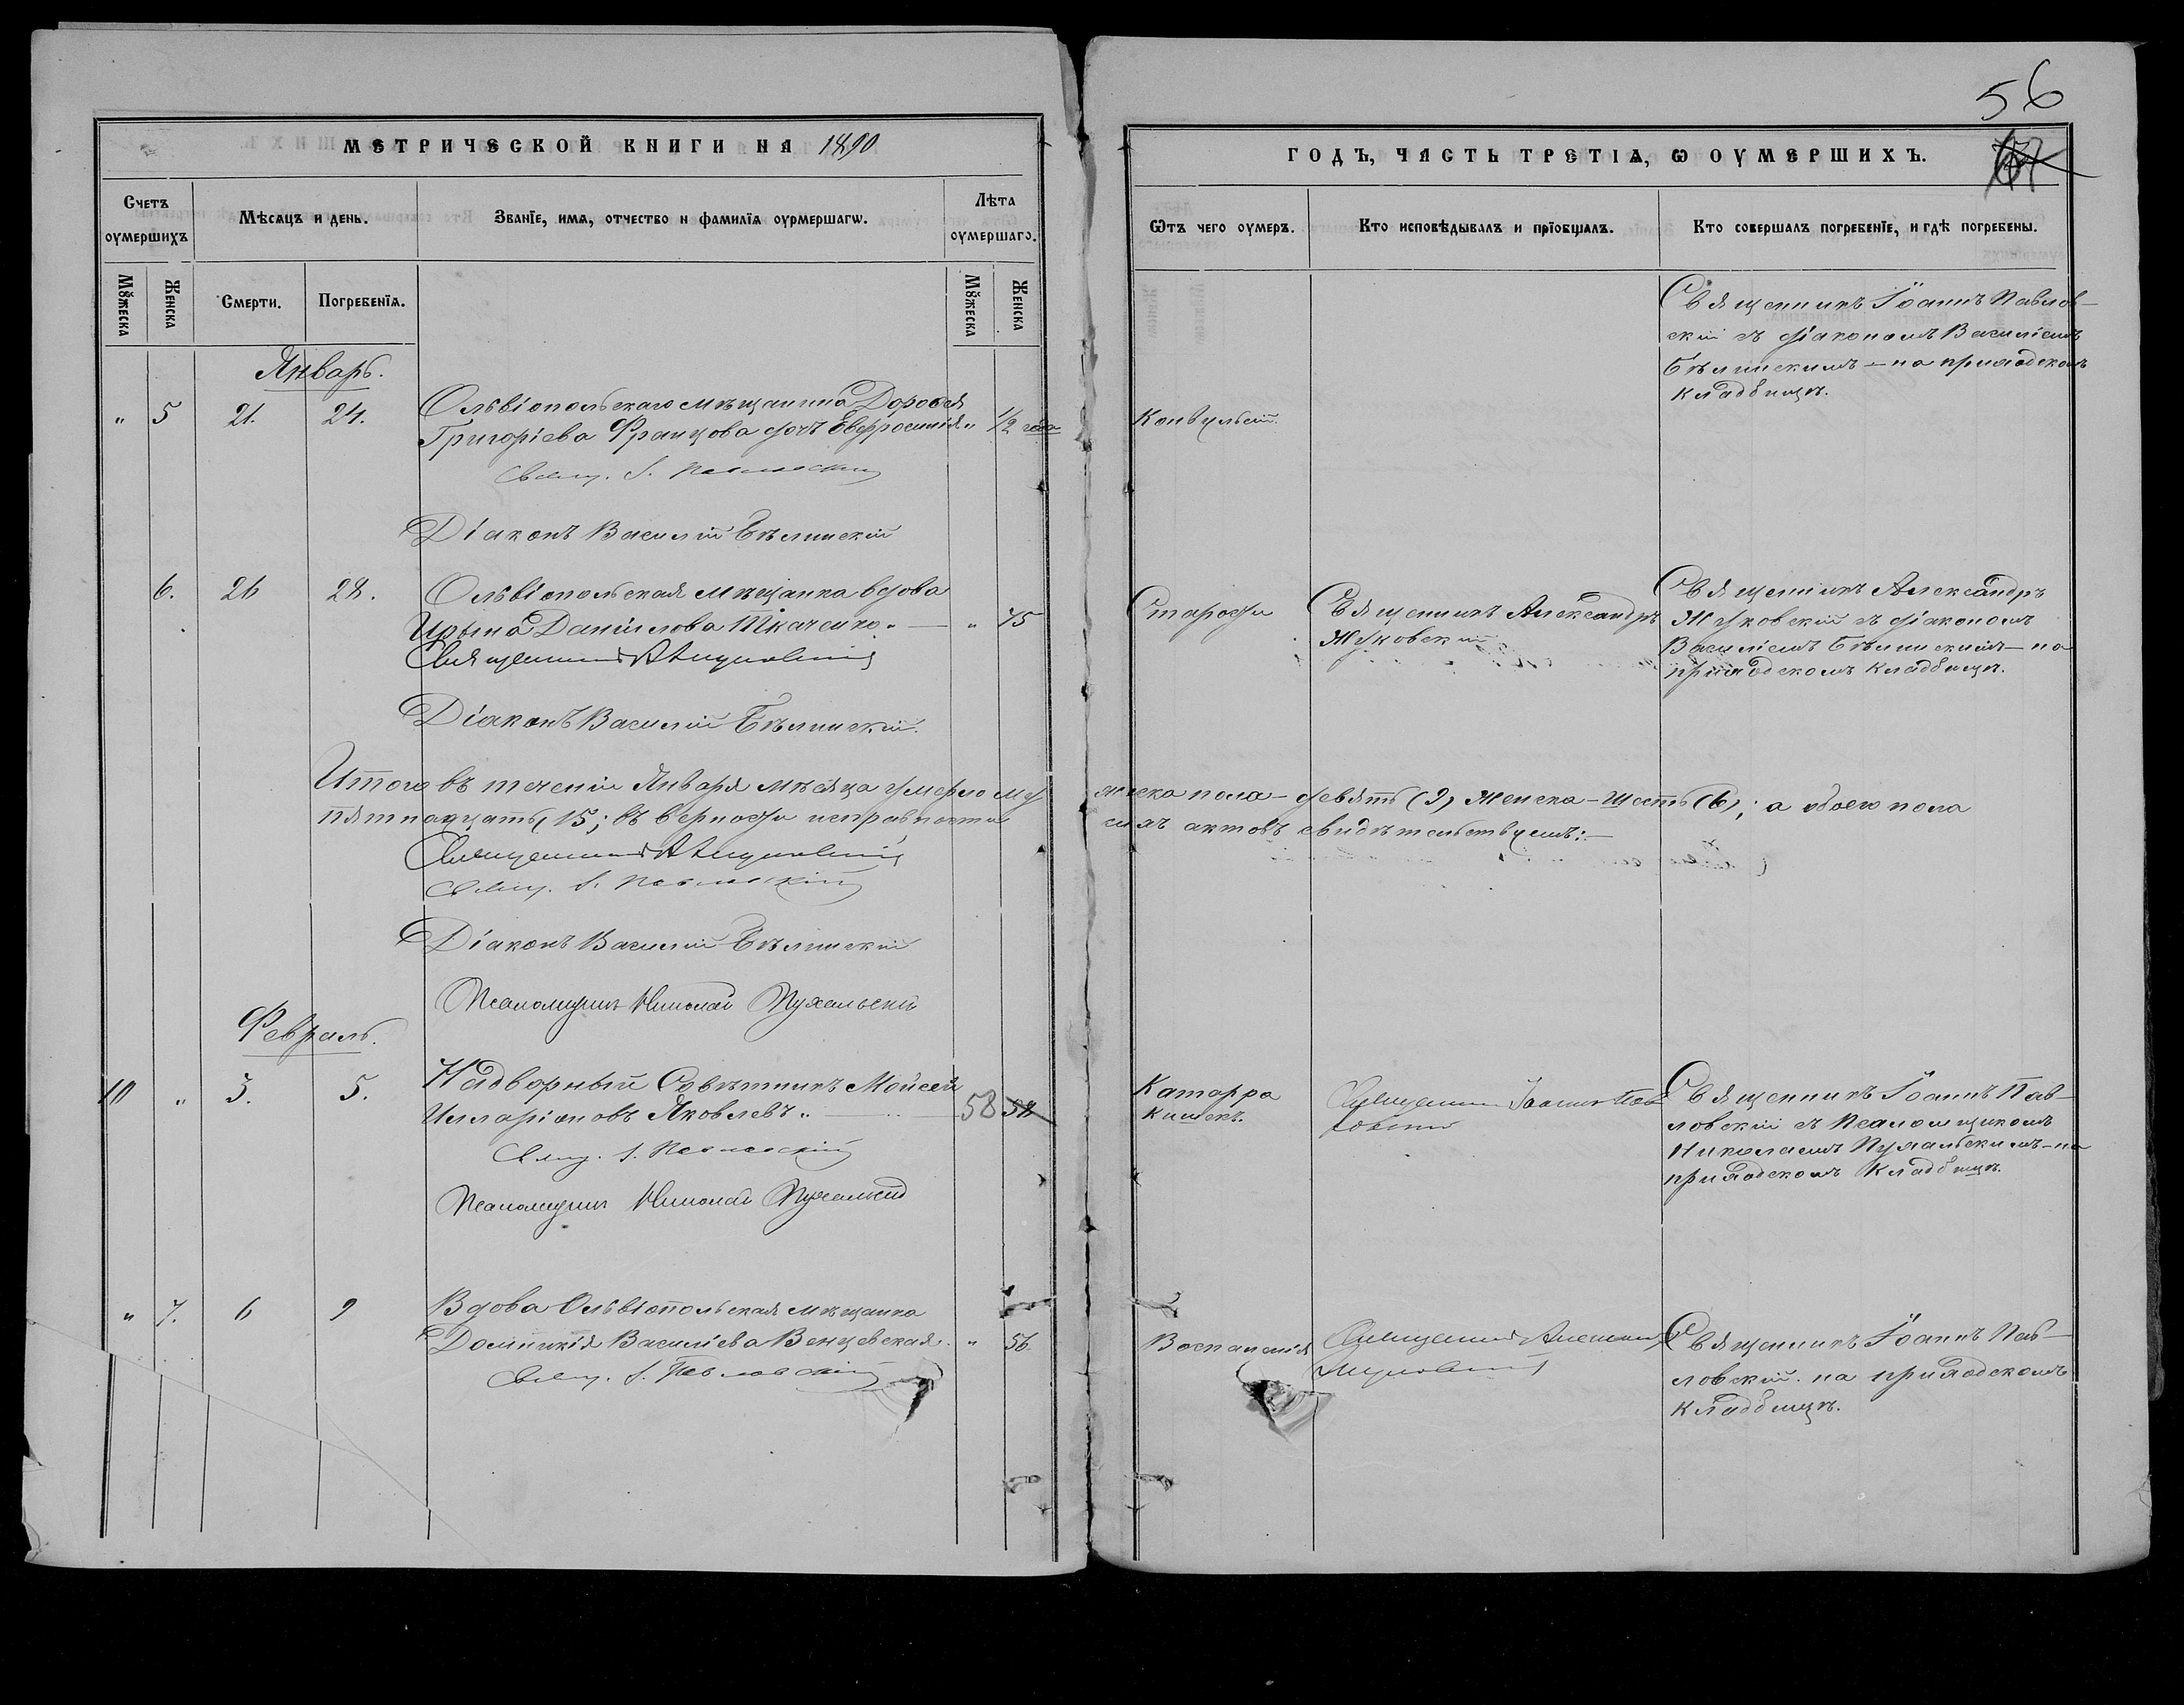 56
МЕТРИЧЕСКОЙ КНИГИ НА 1890
ГОДЪ, ЧАСТЬ ТРЕТІѦ, Ѡ ОУМЕРШИХЪ.
Счетъ оумершихъ
Мѣсяцъ и день.
Званїе, имѧ, отчество и фамилїѧ оурмершагѡ.
Лѣта оумершаго.
Ѿтъ чего оумеръ.
Кто исповѣдывалъ и прїобщалъ.
Кто совершалъ погребенїе, и гдѣ погребены.
Мꙋжеска
Женска
Смерти.
Погребенїѧ.
Мꙋжеска
Женска
Январь.
" 5 21. 24. Ольвіопольскаго мѣщанина Дороѳея
Григоріева Францова дочь Евфросинія " 1/2 года
Свящ. І. Павловскій
Діаконъ Василій Бѣлинскій
Конвульсій.
Священникъ Іоаннъ Павлов-
скій съ діакономъ Василіемъ
Бѣлинскимъ – на приходскомъ
кладбищѣ.
6. 26 28. Ольвіопольская мѣщанка вдова
Ирына Даніилова Ткаченко. — " 75
Священникъ А Жуковскій
Діаконъ Василій Бѣлинскій.
Старости
Священникъ Александръ
Жуковскій
Священникъ Александръ
Жуковскій съ діакономъ
Василіемъ Бѣлинскимъ – на
приходскомъ кладбищѣ.
Итого въ теченіи Января мѣсяца умерло му жеска пола – девять (9) женска – шесть (6); а обоего пола
пятнадцать (15; въ верности исправности сихъ актовъ свидѣтельствуемъ: –
Священникъ А Жуковскій
Свящ. І. Павловскій
Діаконъ Василій Бѣлинскій
Псаломщикъ Николай Пухальскій
Февраль.
10 " 3. 5. Надворный Совѣтникъ Мойсей
Илларіоновъ Яковлевъ. — 58
Свящ. І. Павловскій
Псаломщикъ Николай Пухальскій
Катарра
кишекъ.
Священникъ Іоаннъ Пав
ловскій
Священникъ Іоаннъ Пав-
ловскій съ Псаломщикомъ
Николаемъ Пухальскимъ – на
приходскомъ кладбищѣ.
" 7. 6 9 Вдова Ольвіопольская мѣщанка
Домникія Василіева Венцевская. " 56.
Свящ. І. Павловскій
Воспаленія
Священникъ
Жуковскій
Священникъ Іоаннъ Пав-
ловскій. на приходскомъ
кладбищѣ.